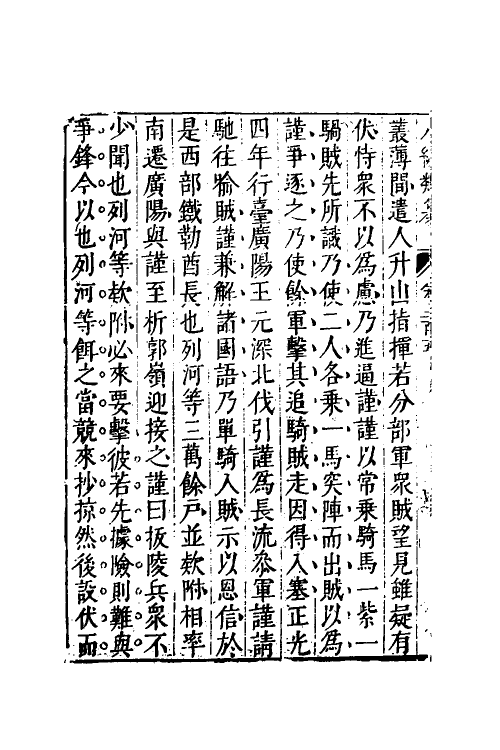 叢薄間遣人升山指揮若分部軍衆賊望見雖疑有
伏恃衆不以爲慮乃進逼謹謹以常乘騎馬一紫一
騧賊先所識乃使二人各乘一馬突陣而出賊以爲
謹爭逐之乃使餘軍擊其追騎賊走因得入塞正光
四年行臺廣陽王元深北伐引謹爲長流叅軍謹請
馳往喻賊謹兼解諸國語乃單騎入賊示以恩信於
是西部鐵勒酋長乜列河等三萬餘戸並欵附相率
南遷廣陽與謹至析郭嶺迎接之謹曰抜陵兵衆不
少聞乜列河等欵附必來要擊彼若先據險則難與
爭鋒今以乜列河等餌之當競來抄掠然後設伏而